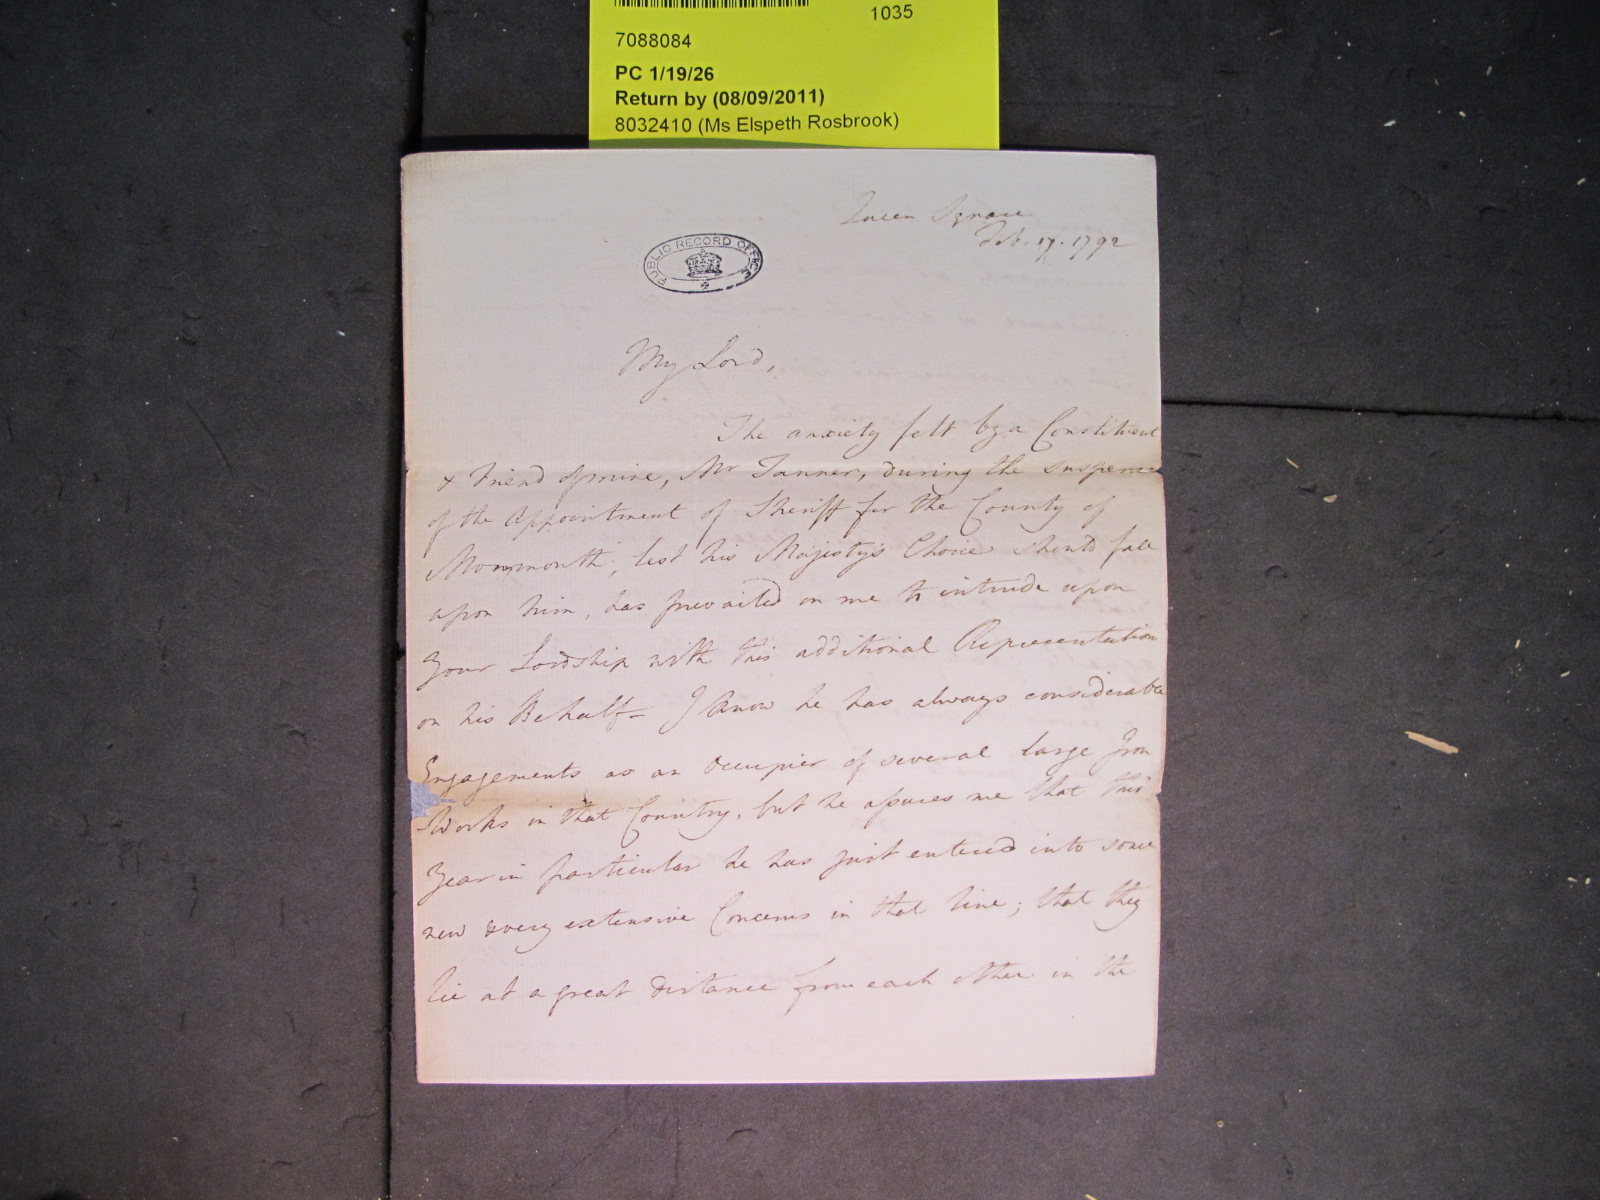 1035
7088084
PC 1/19/26
Return by (08/09/2011)
8032410 (Ms Elspeth Rosbrook)
Queen Square
Feb. 17. 1792
PUBLIC RECORD OFFICE
My Lord,
The anxiety felt by a Constituent
& Friend of mine, Mr Tanner, during the suspence
of the Appointment of Sheriff for the County of
Monmouth, lest his Majesty's Choice should fall
upon him, has prevailed on me to intrude upon
your Lordship with this additional Representation
on his Behalf - I know he has always considerable
Engagements as an Occupier of several large Iron
-Works in that Country, but he assures me that this
Year in particular he has just entered into some
new & very extensive Concerns in that line; that they
lie at a great distance from each other in the